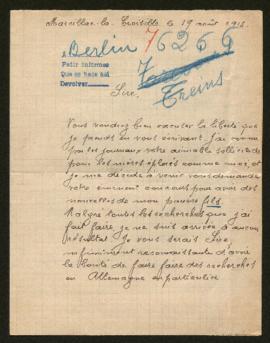 Marcilloc-la-Croisille le 19 août 1916
Berlin 76266
Pedir informes
Que se hace así
Devolver
Treins
Sire,
Vous voudrez bien excuser la liberté que
je prends en vous écrivant. J'ai connu
par les journaux votre aimable sollicitude
pour les malheureux comme moi, et
je me décide à venir vous demander
votre éminent concours pour avoir des
nouvelles de mon pauvre fils.
Malgré toutes les recherches que j'ai
fait faire je ne suis arrivée à aucun
résultat. Je vous serais Sire,
infiniment reconnaissante d'avoir
la bonté de faire faire des recherches
en Allemagne en particulier